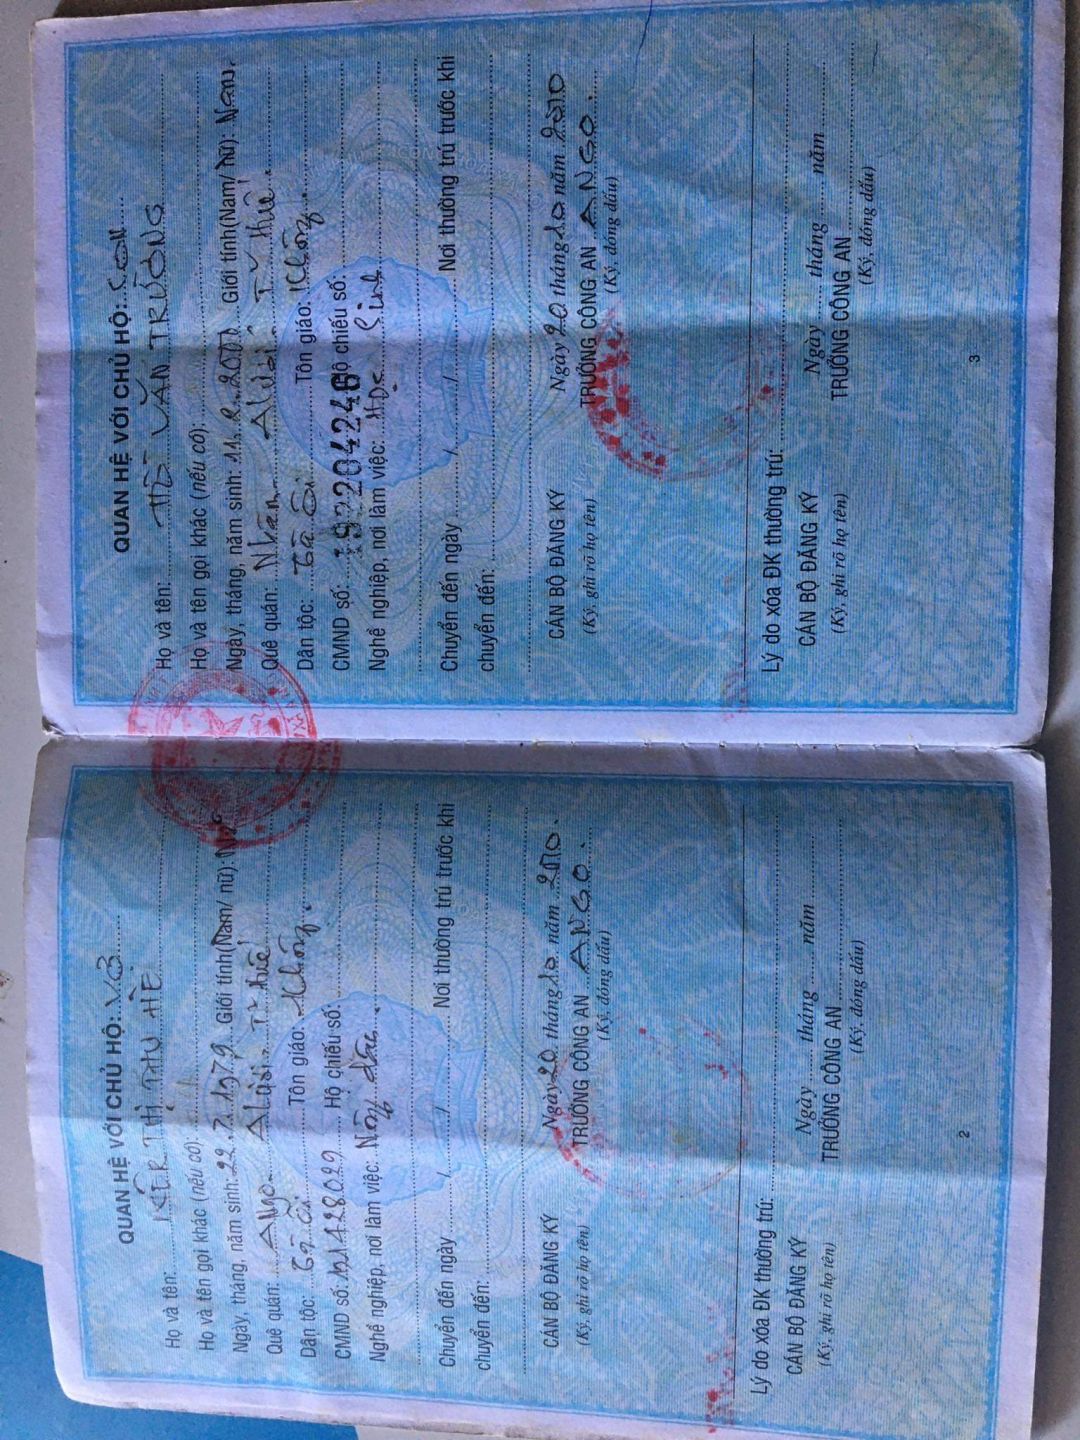 QUAN HỆ VỚI CHỦ HỘ: VỢ
Họ và tên: KÊR THỊ THU HÈ
Họ và tên gọi khác (nếu có):
Ngày, tháng, năm sinh: 22.7.1979 Giới tính(Nam/ nữ): Nữ
Quê quán: A Ngo - A Lưới - TT Huế
Dân tộc: Tà Ôi Tôn giáo: Không
CMND số: 191428029 Hộ chiếu số:
Nghề nghiệp, nơi làm việc: Nông dân
Chuyển đến ngày / / Nơi thường trú trước khi
chuyển đến:
Ngày 20 tháng 10 năm 2010
CÁN BỘ ĐĂNG KÝ TRƯỞNG CÔNG AN A NGO
(Ký, ghi rõ họ tên) (Ký, đóng dấu)
Lý do xóa ĐK thường trú:
Ngày tháng năm
CÁN BỘ ĐĂNG KÝ TRƯỞNG CÔNG AN
(Ký, ghi rõ họ tên) (Ký, đóng dấu)
2
QUAN HỆ VỚI CHỦ HỘ: CON
Họ và tên: HỒ VĂN TRƯỜNG
Họ và tên gọi khác (nếu có):
Ngày, tháng, năm sinh: Giới tính(Nam/ nữ): Nam
Quê quán: Nhâm - A Lưới - TT Huế
Dân tộc: Tà Ôi Tôn giáo: Không
CMND số: 192204246 Hộ chiếu số:
Nghề nghiệp, nơi làm việc: Học Sinh
Chuyển đến ngày / / Nơi thường trú trước khi
chuyển đến:
Ngày 20 tháng 10 năm 2010
CÁN BỘ ĐĂNG KÝ TRƯỞNG CÔNG AN A NGO
(Ký, ghi rõ họ tên) (Ký, đóng dấu)
Lý do xóa ĐK thường trú:
Ngày tháng năm
CÁN BỘ ĐĂNG KÝ TRƯỞNG CÔNG AN
(Ký, ghi rõ họ tên) (Ký, đóng dấu)
3